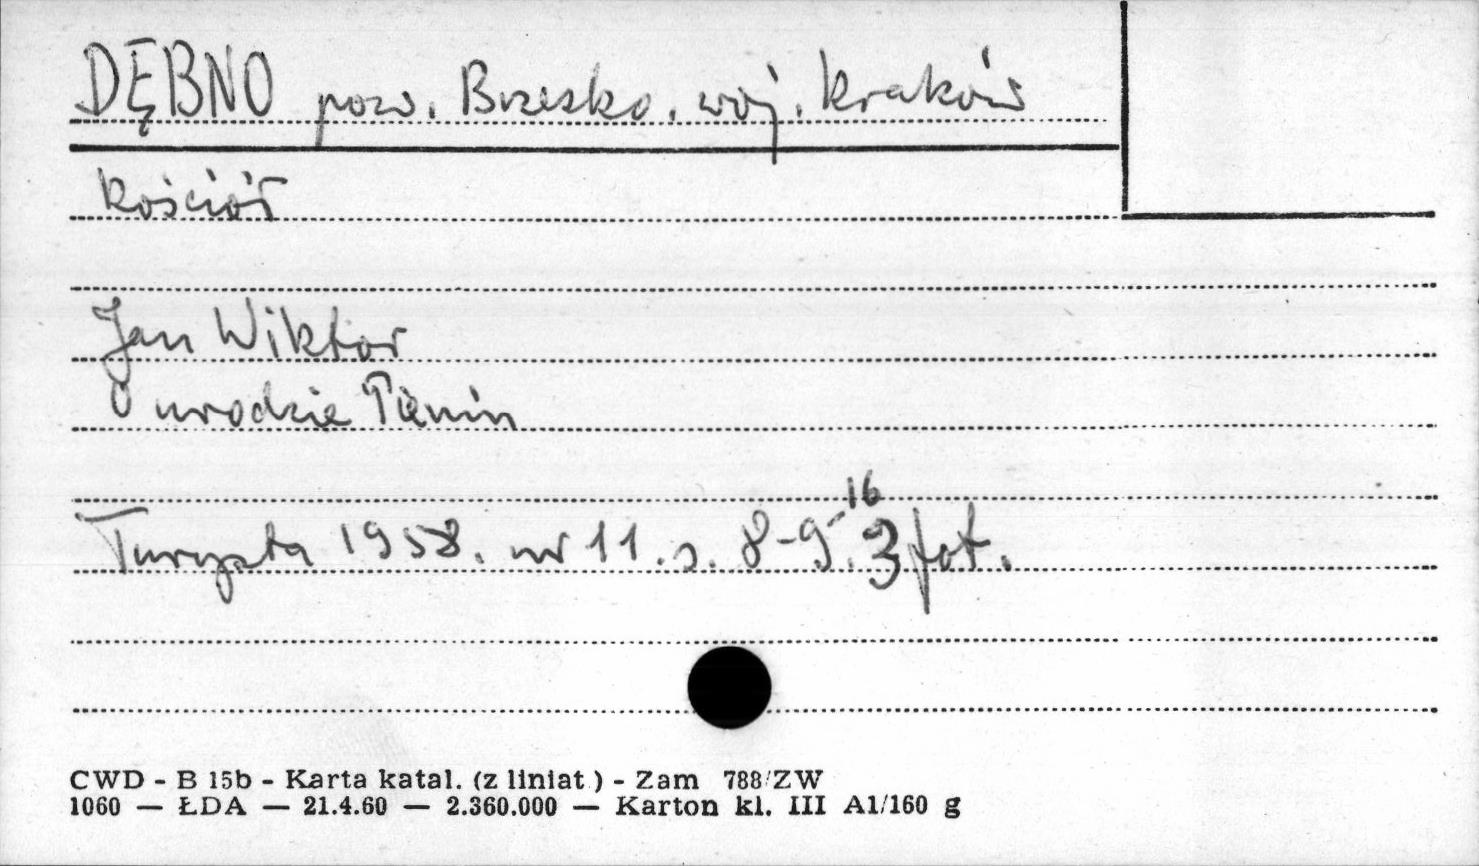 DĘBNO pow. Brzesko. woj. Kraków
Kościół
Jan Wiktor
O urodzie Pienin
Turysta 1958. nr 11. s. 8-9-16. 3 fot.
CWD - B 15b - Karta katal. (z liniat.) - Zam 788/ZW
1060 — ŁDA — 21.4.60 — 2.360.000 — Karton kl. III A1/160 g